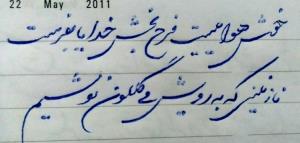 22 May 2011
خوش هواییست فرح بخش خدایا بفرست
نازنینی که به رویش می گلگون نوشیم